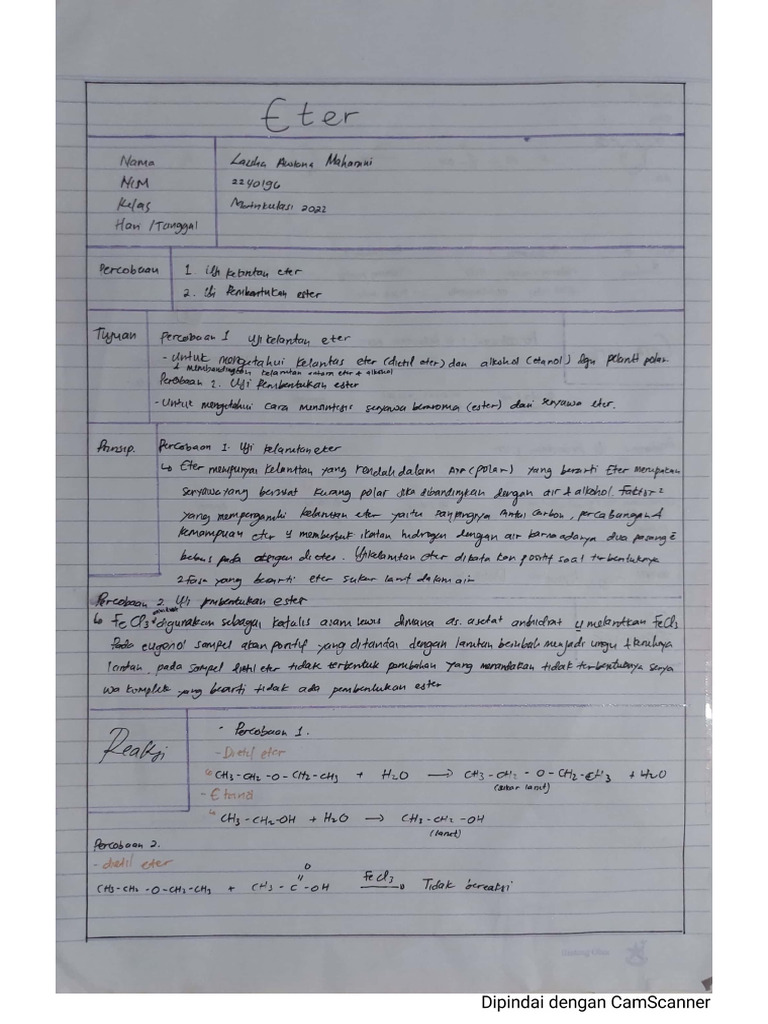 Eter
Nama
Maharani
NIM
2240196
Kelas
Matrikulasi 2022
Hari / Tanggal
Percobaan
1. Uji kelarutan eter
2. Uji Pembentukan ester
Tujuan
Percobaan 1 Uji kelarutan eter
- Untuk mengetahui kelarutas eter (dietil eter) dan alkohol (etanol) polar.
& membandingkan kelarutan antara eter & alkohol
Percobaan 2. Uji Pembentukan ester
- Untuk mengetahui cara mensintesis senyawa beraroma (ester) dari senyawa eter.
Prinsip.
Percobaan 1. Uji kelarutan eter
↳ Eter mempunyai kelarutan yang rendah dalam Air (polar) yang berarti Eter merupakan
senyawa yang bersifat kurang polar jika dibandingkan dengan air & alkohol. Faktor²
yang mempengaruhi kelarutan eter yaitu panjangnya rantai carbon, percabangan &
kemampuan eter u/ membentuk ikatan hidrogen dengan air karna adanya dua pasang e
bebas pada oksigen di eter. Uji kelarutan eter dikatakan positif saat terbentuknya
2 fasa yang bearti eter sukar larut dalam air
Percobaan 2. Uji pembentukan ester
↳ FeCl3 digunakan sebagai katalis asam lewis dimana as. asetat anhidrat u/ melarutkan FeCl3
Pada eugenol sampel akan positif yang ditandai dengan larutan berubah menjadi ungu & keruhnya
larutan, pada sampel dietil eter tidak terbentuk perubahan yang menandakan tidak terbentuknya senya
wa komplek yang bearti tidak ada pembentukan ester
Reaksi
- Percobaan 1.
- Dietil eter
↳ CH3-CH2-O-CH2-CH3 + H2O → CH3-CH2-O-CH2-CH3 + H2O
(sukar larut)
- Etanol
↳ CH3-CH2-OH + H2O → CH3-CH2-OH
(larut)
Percobaan 2.
- dietil eter
O
CH3-CH2-O-CH2-CH3 + CH3-C-OH FeCl3 → Tidak bereaksi
Dipindai dengan CamScanner